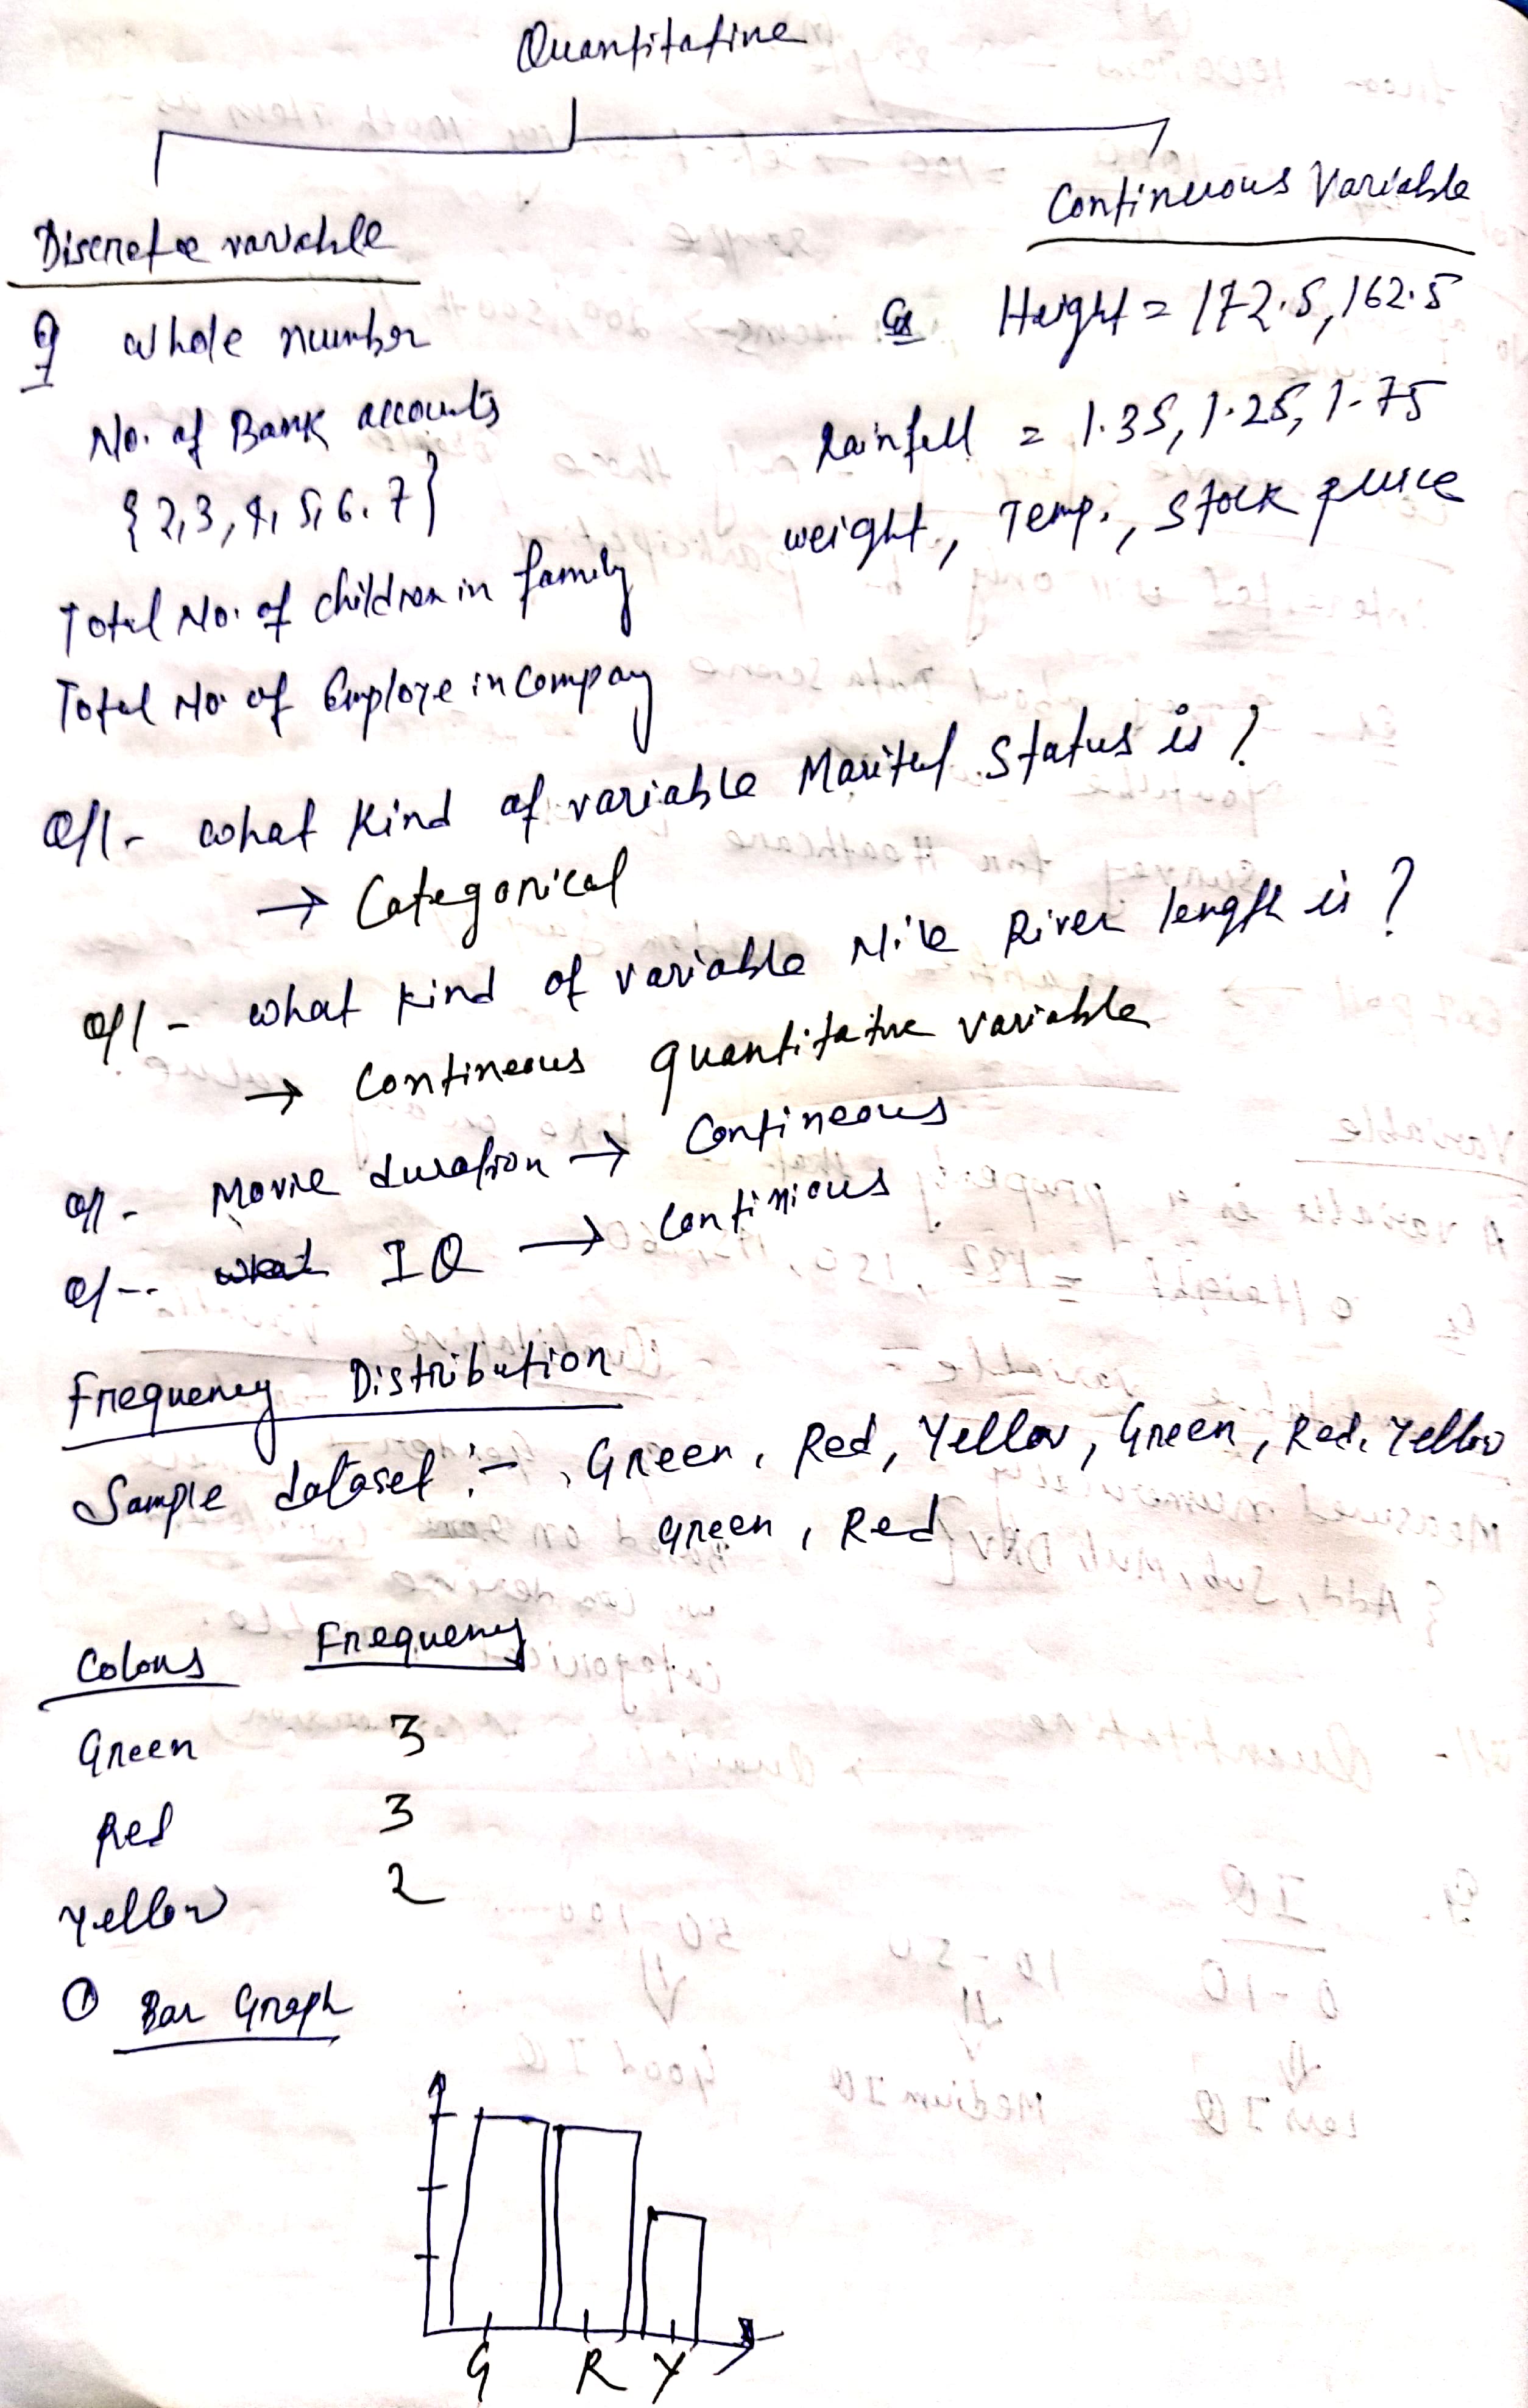 Quantitative
Discrete variable
Eg whole number
No. of Bank accounts
{2,3,4,5,6.7}
Total No. of children in family
Total No. of Employe in Compay
Continuous Variable
Ex Height = 172.5, 162.5
Rainfall = 1.35, 1.25, 1.75
weight, Temp., Stock price
Q/1- what kind of variable Marital Status is?
→ Categorical
Q/1 - what kind of variable Nile River length is?
→ Contineous quantitative variable
Q/1- Movie duration → Contineous
Q/-- what IQ → Continious
Frequency Distribution
Sample dataset :- , Green, Red, Yellow, Green, Red, Yellow
Green, Red
Colors Frequency
Green 3
Red 3
Yellow 2
① Bar Graph
G R Y